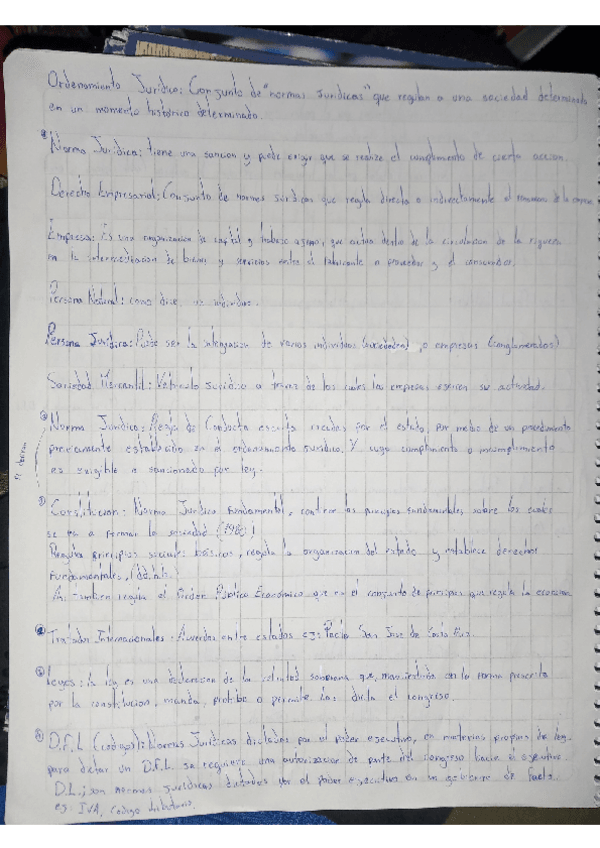 Ordenamiento Jurídico: Conjunto de "normas Jurídicas" que regulan a una sociedad determinada
en un momento histórico determinado.
Norma Jurídica: tiene una sancion y puede exigir que se realize el cumplimiento de cierta accion.
Derecho Empresarial: Conjunto de normas Jurídicas que regula directa o indirectamente el de la
Empresa: Es una organización de capital y trabajo ajeno, que dentro de la circulacion de la riqueza
en la intermediacion de bienes y servicios entre el fabricante o proveedor y el consumidor.
Persona Natural: como dice, individuo.
Persona Jurídica: Puede ser la integracion de varios individuos (sociedades), o empresas (conglomerados)
Sociedad Mercantil: Vehículo Jurídico a traves de los cuales las empresas ejercen su actividad.
Norma Jurídica: Regla de Conducta escrita por el estado, por medio de un procedimiento
previamente establecido en el ordenamiento Jurídico. Y cuyo cumplimiento o incumplimiento
es exigible o sancionado por ley.
Constitucion: Norma Jurídica Fundamental, contiene los principios fundamentales sobre los cuales
se va a formar la sociedad (1980)
Regula principios sociales básicos, regula la organizacion del estado y establece derechos
fundamentales, (dd.hh.)
tambien regula el Orden Público Económico que es el conjunto de principios que regula la economia
Tratados Internacionales: Acuerdos entre estados ej: Pacto San Jose de Costa Rica.
Leyes: la ley es una declaracion de la voluntad soberana que, manifestada en la forma prescrita
por la constitucion, manda, prohibe o permite. Las dicta el congreso.
D.F.L (codigos): Normas Jurídicas dictadas por el poder ejecutivo, en materias propias de ley.
para dictar un D.F.L se requiere una autorizacion de parte del congreso hacia el ejecutivo.
D.L.: son normas Jurídicas dictadas por el poder ejecutivo en un gobierno de facto.
ej: IVA, Codigo tributario.